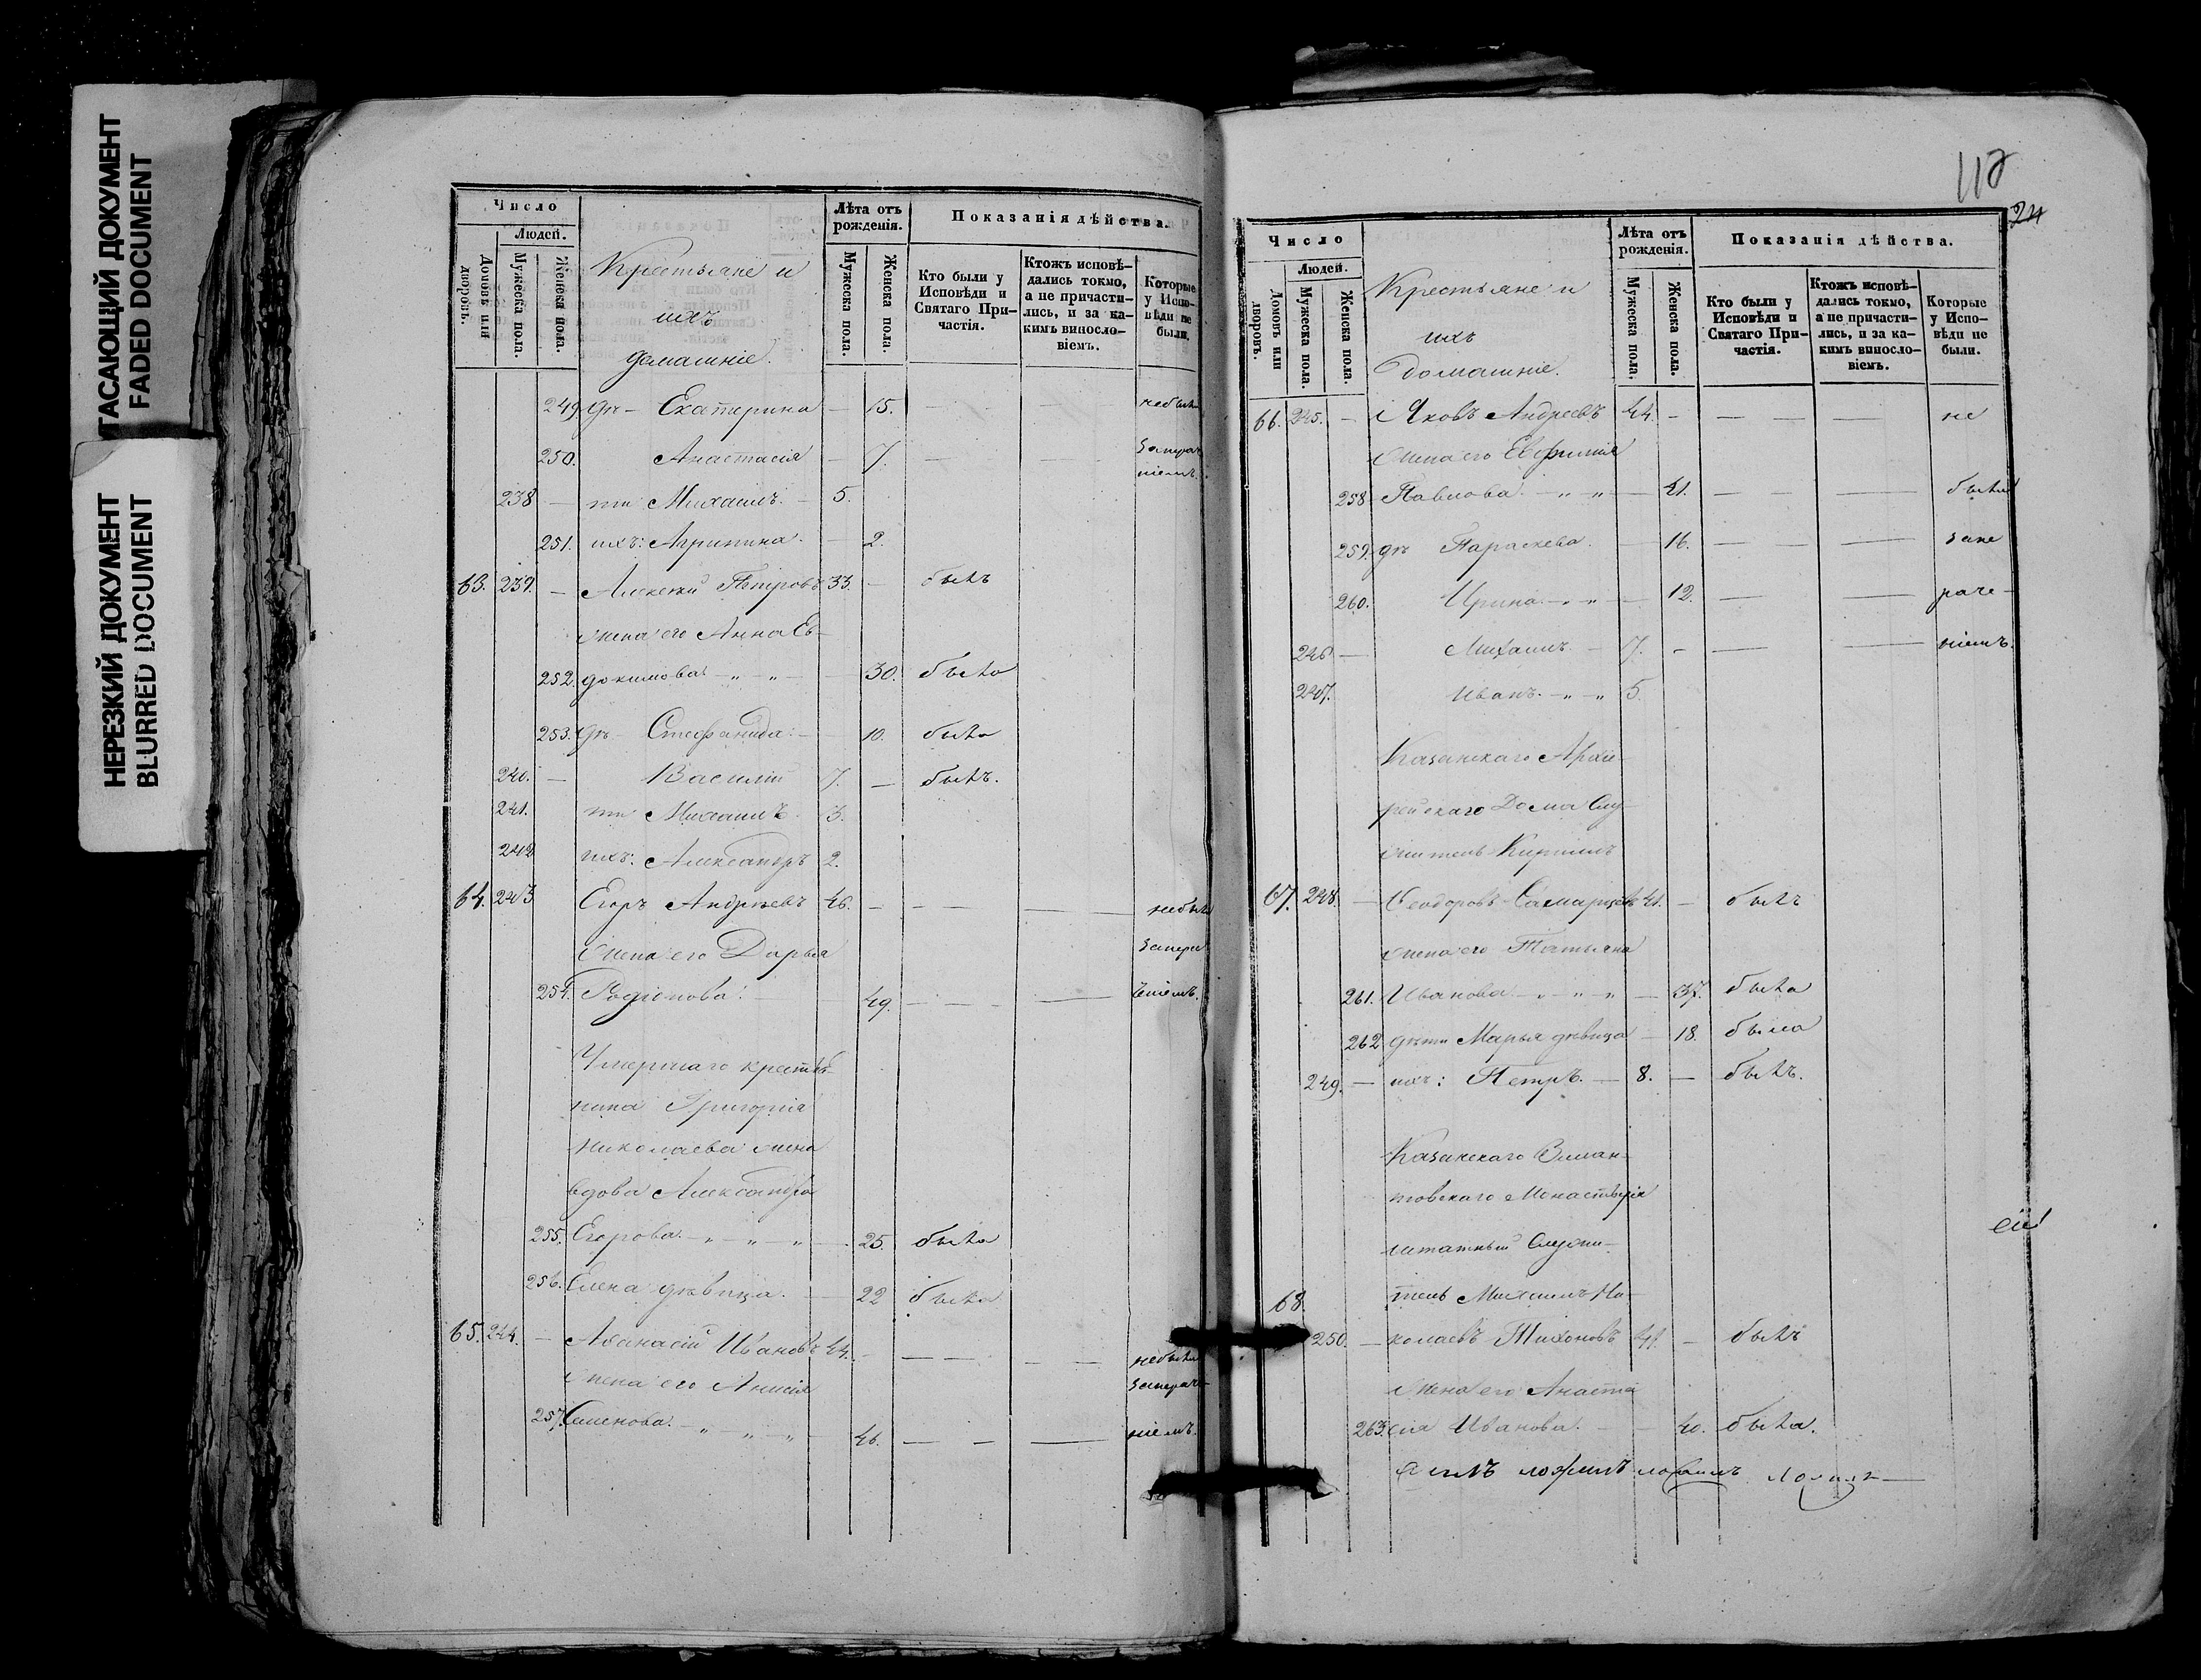 УГАСАЮЩИЙ ДОКУМЕНТ
FADED DOCUMENT
НЕРЕЗКИЙ ДОКУМЕНТ
BLURRED DOCUMENT
Число
Людей.
Домовъ или дворовъ.
Мужеска пола.
Женска пола.
Крестьяне и
ихъ
домашніе.
Лѣта отъ рожденія.
Мужеска пола.
Женска пола.
Показанія дѣйства.
Кто были у Исповѣди и Святаго Причастія.
Ктожъ исповѣдались токмо, а не причастились, и за какимъ винословіемъ.
Которые у Исповѣди не были.
249 дѣ- Екатерина — 15. — — небыли
250. Анастасія — 7. — — занера
ніемъ.
238 — ти Михаилъ. — 5.
251. ихъ: Агрипина. — 2.
63. 239. — Алексѣй Петровъ 33. — былъ
жена его Анна Ев-
252. докимова — „ — „ — 30. была
253. дѣ- Стефанида: — 10. была
240. — Василій 7. — былъ.
241. ти Михаилъ. 3.
242 ихъ: Александръ 2.
64. 243 Егоръ Андреевъ 46. — — — небыли
жена его Дарья занера
254. Родіонова: 49. — — — ченіемъ.
Умершаго крестья-
нина Григорія
Николаева жена
вдова Александра
255. Егорова. — „ — „ — „ — 25. была
256. Елена дѣвица. — 22 была
65. 244. — Афанасій Ивановъ 44. — — — небыли
жена его Анисія занерач-
257. Семенова. — „ — „ — „ 46. — — — ніемъ.
112
24
Число
Людей.
Домовъ или дворовъ.
Мужеска пола.
Женска пола.
Крестьяне и
ихъ
домашніе.
Лѣта отъ рожденія.
Мужеска пола.
Женска пола.
Показанія дѣйства.
Кто были у Исповѣди и Святаго Причастія.
Ктожъ исповѣдались токмо, а не причастились, и за какимъ винословіемъ.
Которые у Исповѣди не были.
66. 245. — Яковъ Андреевъ 44. — — — не
жена его Евфимія
258 Павлова. — „ „ — 41. — — были
259. дѣ Параскева. — 16. — — зане
260. Ирина. — „ „ — 12. — — раче-
246 — Михаилъ. — 7. — — — ніемъ.
247. Иванъ. — „ „ 5.
Казанскаго Архіе-
рейскаго Дома Слу-
житель Кириллъ
67. 248. — Феодоровъ 41. — былъ
жена его Татьяна
261. Иванова — „ „ „ — 37. была
262 дѣти Марья дѣвица — 18. была
249. — ихъ: Петръ. — 8. — былъ.
Казанскаго Зилан-
товскаго Монастыря
штатный Служи-
68. тель Михаилъ Ни-
250. — колаевъ Тихоновъ — былъ
жена его Анаста
263. сія Иванова. — 40. была.